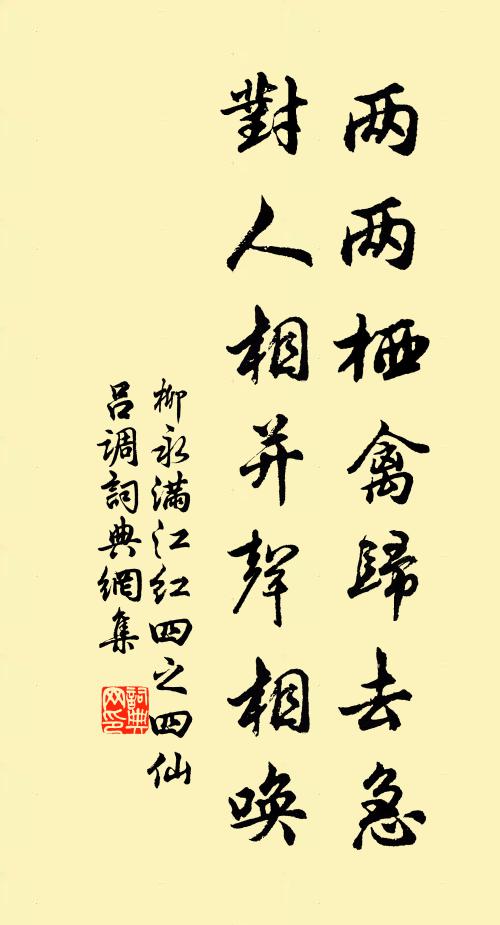 两两栖禽歸去急
對人相并聲相唤
柳永满江红四之四仙
吕调詞典網集
詞典网印